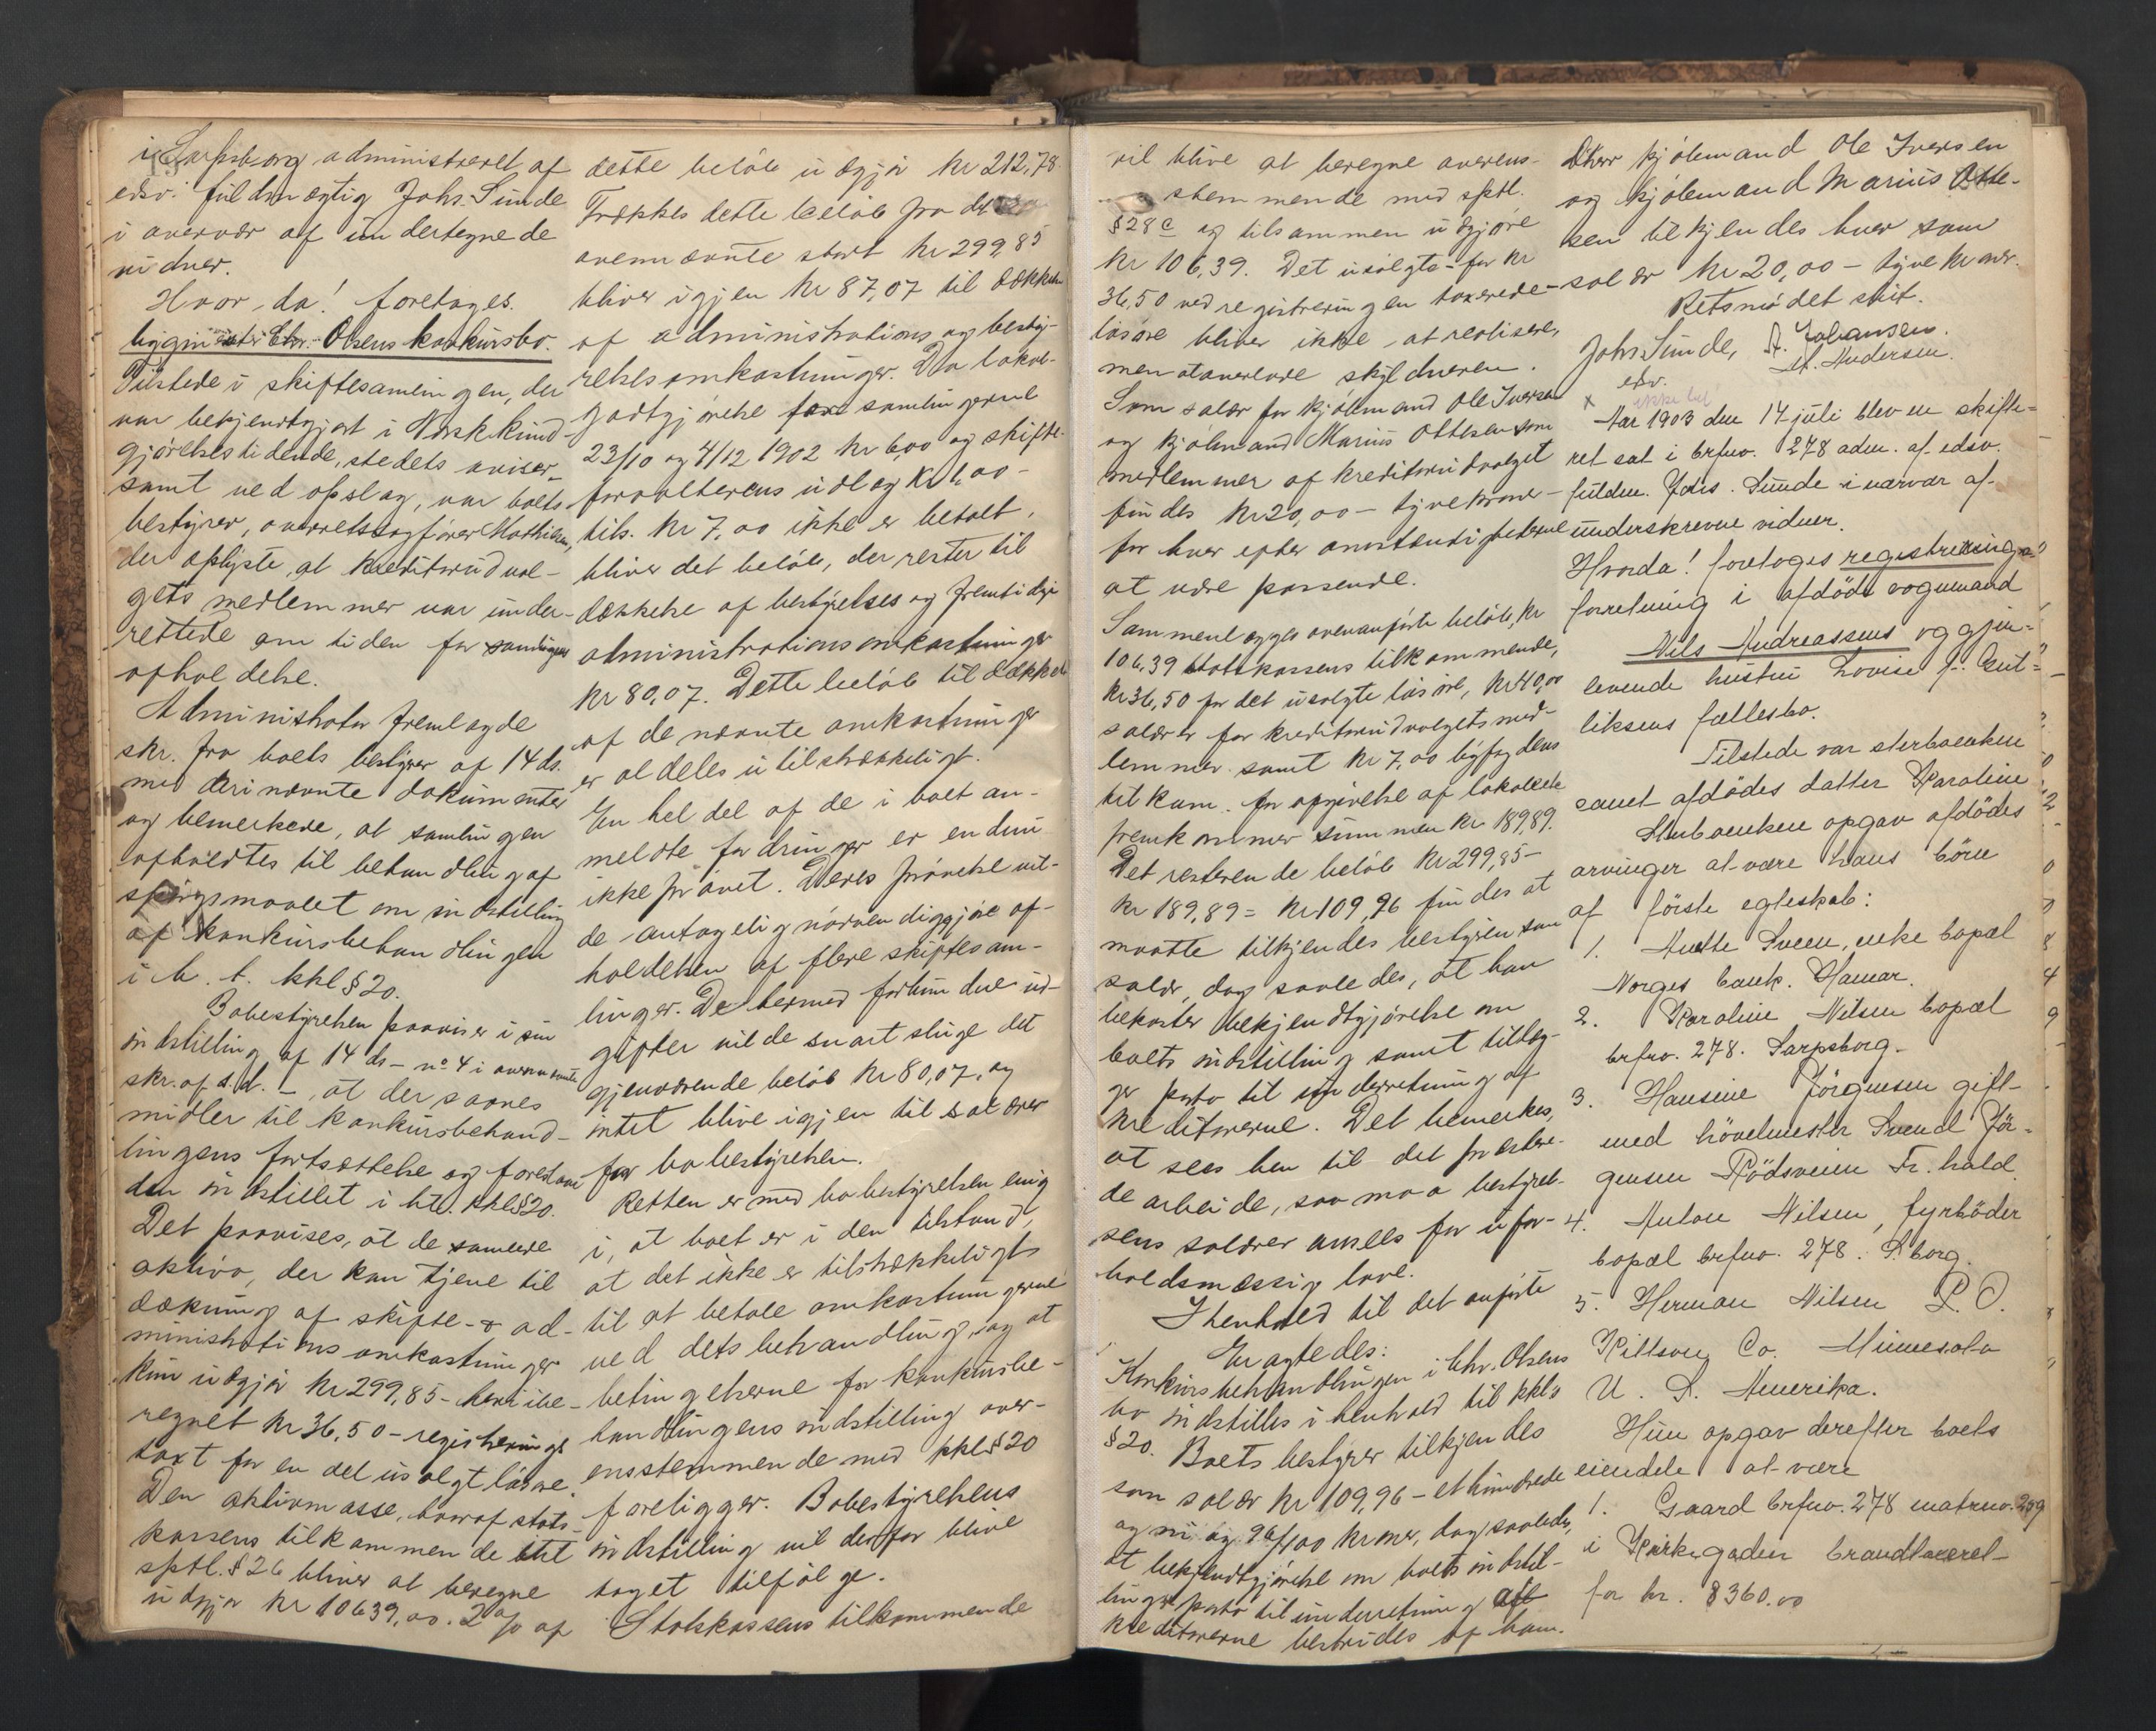 i Sarpsborg administreret af
edsv. fuldmægtig Johs. Sunde
i overvær af undertegnede
vidner.
Hvor da! foretages.
Chr. Olsens konkursbo.
Tilstede i skiftesamlingen, der
var bekjendtgjort i Norsk Kund-
gjörelsestidende, stedets aviser
samt ved opslag, var boets
bestyrer, overretssagförer Mathisen,
der oplyste, at kreditorudval-
gets medlemmer var under-
rettede om tiden for samlingens
afholdelse.
Administrator fremlagde
skr. fra boets bestyrer af 14 ds.
med deri nævnte dokumenter
og bemerkede, at samlingen
afholdtes til behandling af
spörgsmaalet om indstilling
af konkursbehandlingen
i h. t. kkl § 20.
Bobestyrelsen paaviser i sin
indstilling af 14 ds - no 4 i ovennævnte
skr. af s. d. -, at der savnes
midler til konkursbehand-
lingens fortsættelse og foreslaar
den indstillet i ht. kkl § 20.
Det paavises, at de samlede
aktiva, der kan tjene til
dækning af skifte- & ad-
ministrations omkostninger
kun udgjör kr 299,85 - heri ibe-
regnet kr 36,50 - registrerings
taxt for en del usolgt lösöre.
Den aktivmasse, hvoraf stats-
kassens tilkommende
sptl. § 26 bliver at beregne
udgjör kr 10639,00. 2 % af
dette belöb udgjör kr 212,78.
Trækkes dette belöb fra det
ovennævnte stort kr 299,85
bliver igjen kr 87,07 til dækkelse
af administrations og besty-
relsesomkostninger. Da lokal-
godtgjörelse for samlingerne
23/10 og 4/12 1902 kr 6,00 og skifte-
forvalterens udlæg kr 1,00 -
tils. kr 7,00 ikke er betalt,
bliver det belöb, der rester til
dækkelse af bestyrelses og fremtidige
administrationsomkostninger
kr 80,07. Dette belöb til dækkelse
af de nævnte omkostninger
er aldeles utilstrækkeligt.
En hel del af de i boet an-
meldte fordringer er endnu
ikke prövet. Deres prövelse vil-
de antagelig nödvendiggjöre af-
holdelsen af flere skiftesam-
linger. De hermed forbundne ud-
gifter vilde snart sluge det
gjenværende belöb kr 80,07, og
intet blive igjen til salærer
for bobestyrelsen.
Retten er med bobestyrelsen enig
i, at boet er i den tilstand,
at det ikke er tilstrækkeligt
til at betale omkostningerne
ved dets behandling, og at
betingelserne for konkursbe-
handlingens indstilling over-
ensstemmende med kkl § 20
foreligger. Bobestyrelsens
indstilling vil derfor blive
taget tilfölge.
Statskassens tilkommende
vil blive at beregne overens-
stemmende med sptl.
§ 28 c og tilsammen udgjöre
kr 106,39. Det usolgte - for kr
36,50 ved registreringen taxerede -
lösöre bliver ikke at realisere,
men at overlade skyldneren.
Som salær for kjöbmand Ole Iversen
og kjöbmand Marius Ottesen som
medlemmer af kreditorudvalget
findes kr 20,00 - tyve kroner -
for hver efter omstændighederne
at være passende.
Sammenlægges ovenanförte belöb, kr
106,39 statskassens tilkommende,
kr 36,50 for det usolgte lösöre, kr 40,00
salærer for kreditorudvalgets med-
lemmer samt kr 7,00 byfogdens
tilkom. for afgivelse af lokaler
fremkommer summen kr 189,89.
Det resterende belöb kr 299,85 -
kr 189,89 = kr 109,96 findes at
maatte tilkjendes bestyreren som
salær, dog saaledes, at han
bekoster bekjendtgjörelse om
boets indstilling samt tillæg-
ger porto til underretning af
kreditorerne. Det bemerkes,
at sees hen til det præstere-
de arbeide, saa maa bestyrel-
sens salærer ansees for ufor-
holdsmæssig lave.
I henhold til det anförte
Eragtedes:
Konkursbehandlingen i Chr. Olsens
bo indstilles i henhold til kkl.s
§ 20. Boets bestyrer tilkjendes
som salær kr 109,96 - et hundrede
og ni og 96/100 kroner, dog saaledes,
at bekjendtgjörelse om boets indstil-
ling & porto til underretning af
kreditorerne bestrides af ham.
Dherr kjöbmand Ole Iversen
og kjöbmand Marius Otte-
sen tilkjendes hver som
salær kr 20,00 - tyve kroner.
Retsmödet slut.
Johs. Sunde, A. Johansen.
edsv. A. Andersen.
x ikke bet
Aar 1903 den 14 juli blev en skifte-
ret sat i brfno. 278 adm. af edsv.
fuldm. Johs. Sunde i nærvær af
underskrevne vidner.
Hvorda! foretoges registrerings-
forretning i afdöde vognmand
Nils Andreassens og gjen-
levende hustru Lovise f.
liksens fællesbo.
Tilstede var sterboenken
samt afdödes datter Karoline
Sterboenken opgav afdödes
arvinger at være hans börn
af förste egteskab:
1. Anette Sveen, enke bopæl
Norges bank. Hamar.
2. Karoline Nilsen bopæl
brfno. 278. Sarpsborg.
3. Hansine Jörgensen gift
med hövelmester Svend Jör-
gensen Rödsveien Fr.hald.
4. Anton Nilsen, fyrböder
bopæl brfno. 278. S.borg.
5. Herman Nilsen P. O.
Kittson, Co. Minnesota
U. S. Amerika.
Hun opgav derefter boets
eiendele at være
1. Gaard brfno. 278 matrno. 289
i Kirkegaden brandtaxeret
for kr. 8360.00